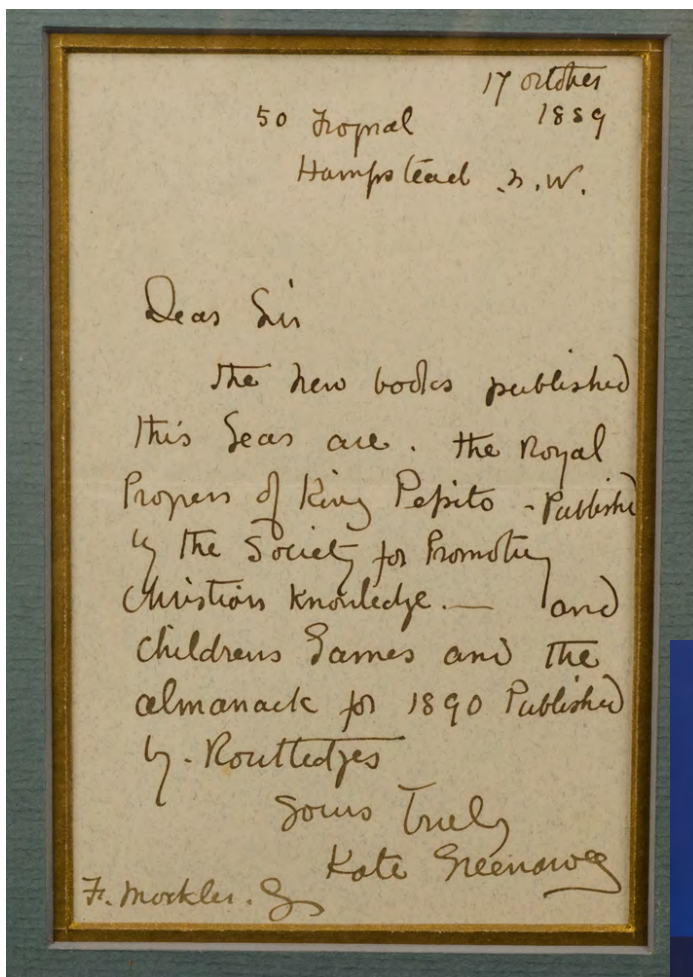 17 October
1889
50 Frognal
Hampstead N.W.
Dear Sir
The new books published
this year are. The Royal
Progress of King Pepito - Publishe
by The Society for Promoting
Christian Knowledge. — and
Childrens Games and The
almanack for 1890 Published
by - Routledges
Yours Truly
Kate Greenaway
F. Mockler. Esq